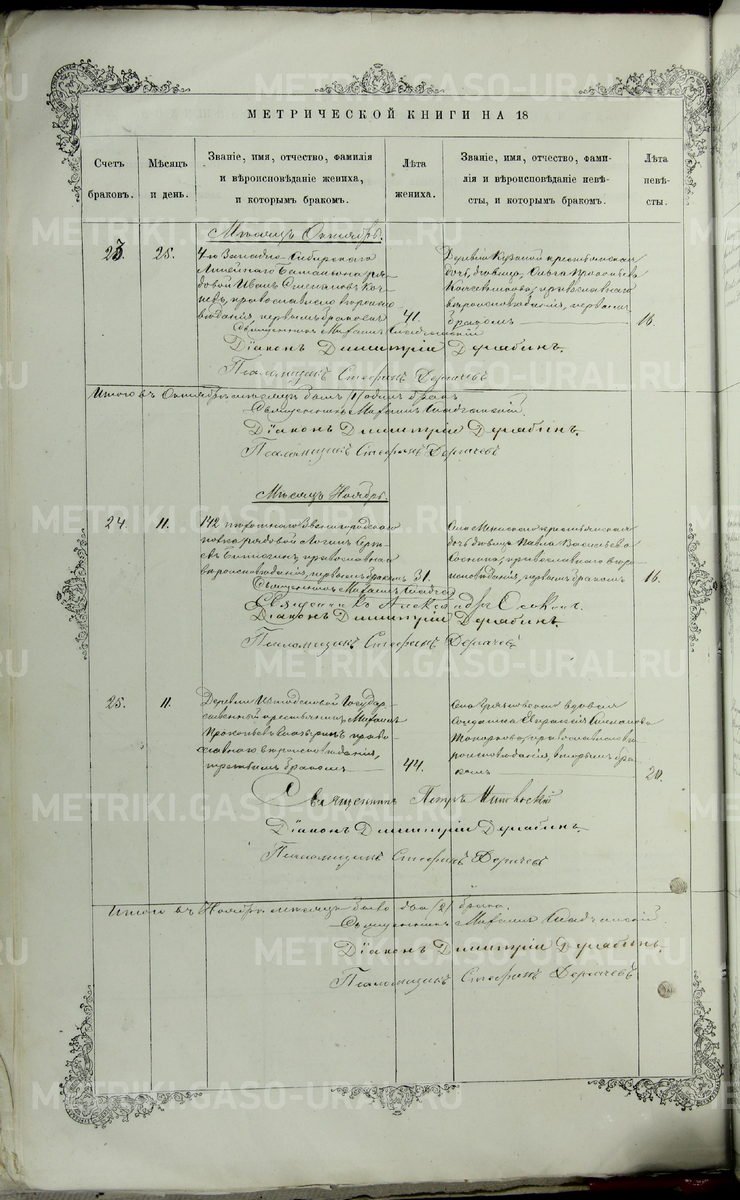 МЕТРИЧЕСКОЙ КНИГИ НА 18
Счетъ браковъ.
Мѣсяцъ и день.
Званіе, имя, отчество, фамилія и вѣроисповѣданіе жениха, и которымъ бракомъ.
Лѣта жениха.
Званіе, имя, отчество, фами-
лія и вѣроисповѣданіе невѣ-
сты, и которымъ бракомъ.
Лѣта невѣ-
сты.
Мѣсяцъ Октябрь.
23. 25.
4го Западно-Сибирскаго
Линейнаго Баталіона ря-
довой Иванъ
православнаго вѣроиспо-
вѣданія, первымъ бракомъ
41.
Деревни крестьянская
дочь, дѣвица, Ольга
православнаго
вѣроисповѣданія, первымъ
бракомъ
16.
Священникъ Михаилъ
Діаконъ Димитрій Дерябинъ.
Псаломщикъ Стефанъ Дергачевъ
Итого въ Октябрѣ мѣсяцѣ былъ /1/ одинъ бракъ
Священникъ Михаилъ
Діаконъ Димитрій Дерябинъ.
Псаломщикъ Стефанъ Дергачевъ
Мѣсяцъ Ноябрь.
24. 11.
142 пѣхотнаго Звенигородскаго
полка рядовой Логинъ
православнаго
вѣроисповѣданія, первымъ бракомъ
31.
Села крестьянская
дочь дѣвица Павла Васильева
православнаго вѣро-
исповѣданія, первымъ бракомъ
16.
Священникъ Михаилъ
Священникъ Александръ
Діаконъ Димитрій Дерябинъ.
Псаломщикъ Стефанъ Дергачевъ
25. 11.
Деревни Государ-
ственный крестьянинъ Михаилъ
Прокопьевъ право-
славнаго вѣроисповѣданія,
третьимъ бракомъ
44.
Села вдова
Солдатка Евпраксія
православнаго вѣ-
роисповѣданія, вторымъ бра-
комъ
20.
Священникъ Петръ
Діаконъ Димитрій Дерябинъ.
Псаломщикъ Стефанъ Дергачевъ
Итого въ Ноябрѣ мѣсяцѣ было два /2/ брака.
Священникъ Михаилъ
Діаконъ Димитрій Дерябинъ.
Псаломщикъ Стефанъ Дергачевъ
METRIKI.GASO-URAL.RU